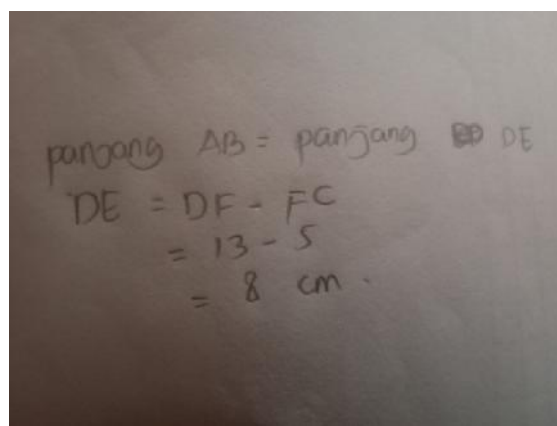 panjang AB = panjang DE
DE = DF - FC
= 13 - 5
= 8 cm.